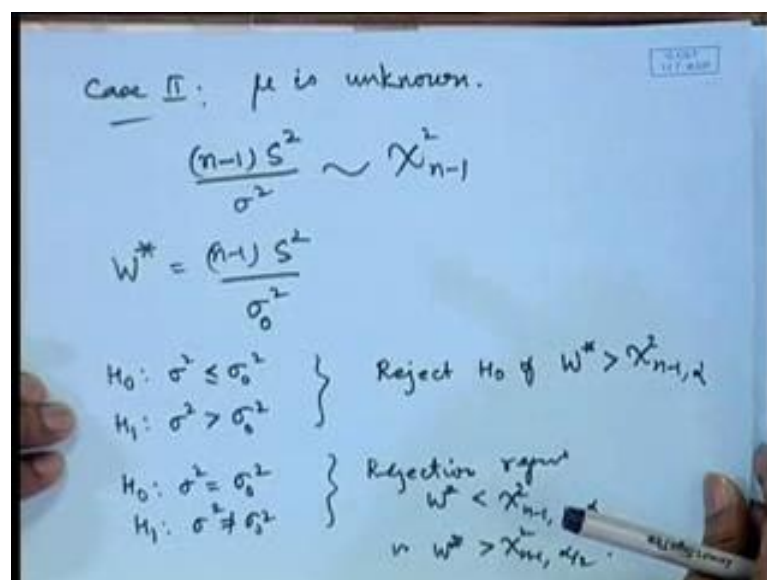 Case II: μ is unknown.
(n-1) S² / σ² ~ χ²_{n-1}
W* = (n-1) S² / σ₀²
H₀: σ² ≤ σ₀² } Reject H₀ if W* > χ²_{n-1, α}
H₁: σ² > σ₀²
H₀: σ² = σ₀² } Rejection
H₁: σ² ≠ σ₀² W* < χ²_{n-1,
or W* > χ²_{n-1, α/2}.